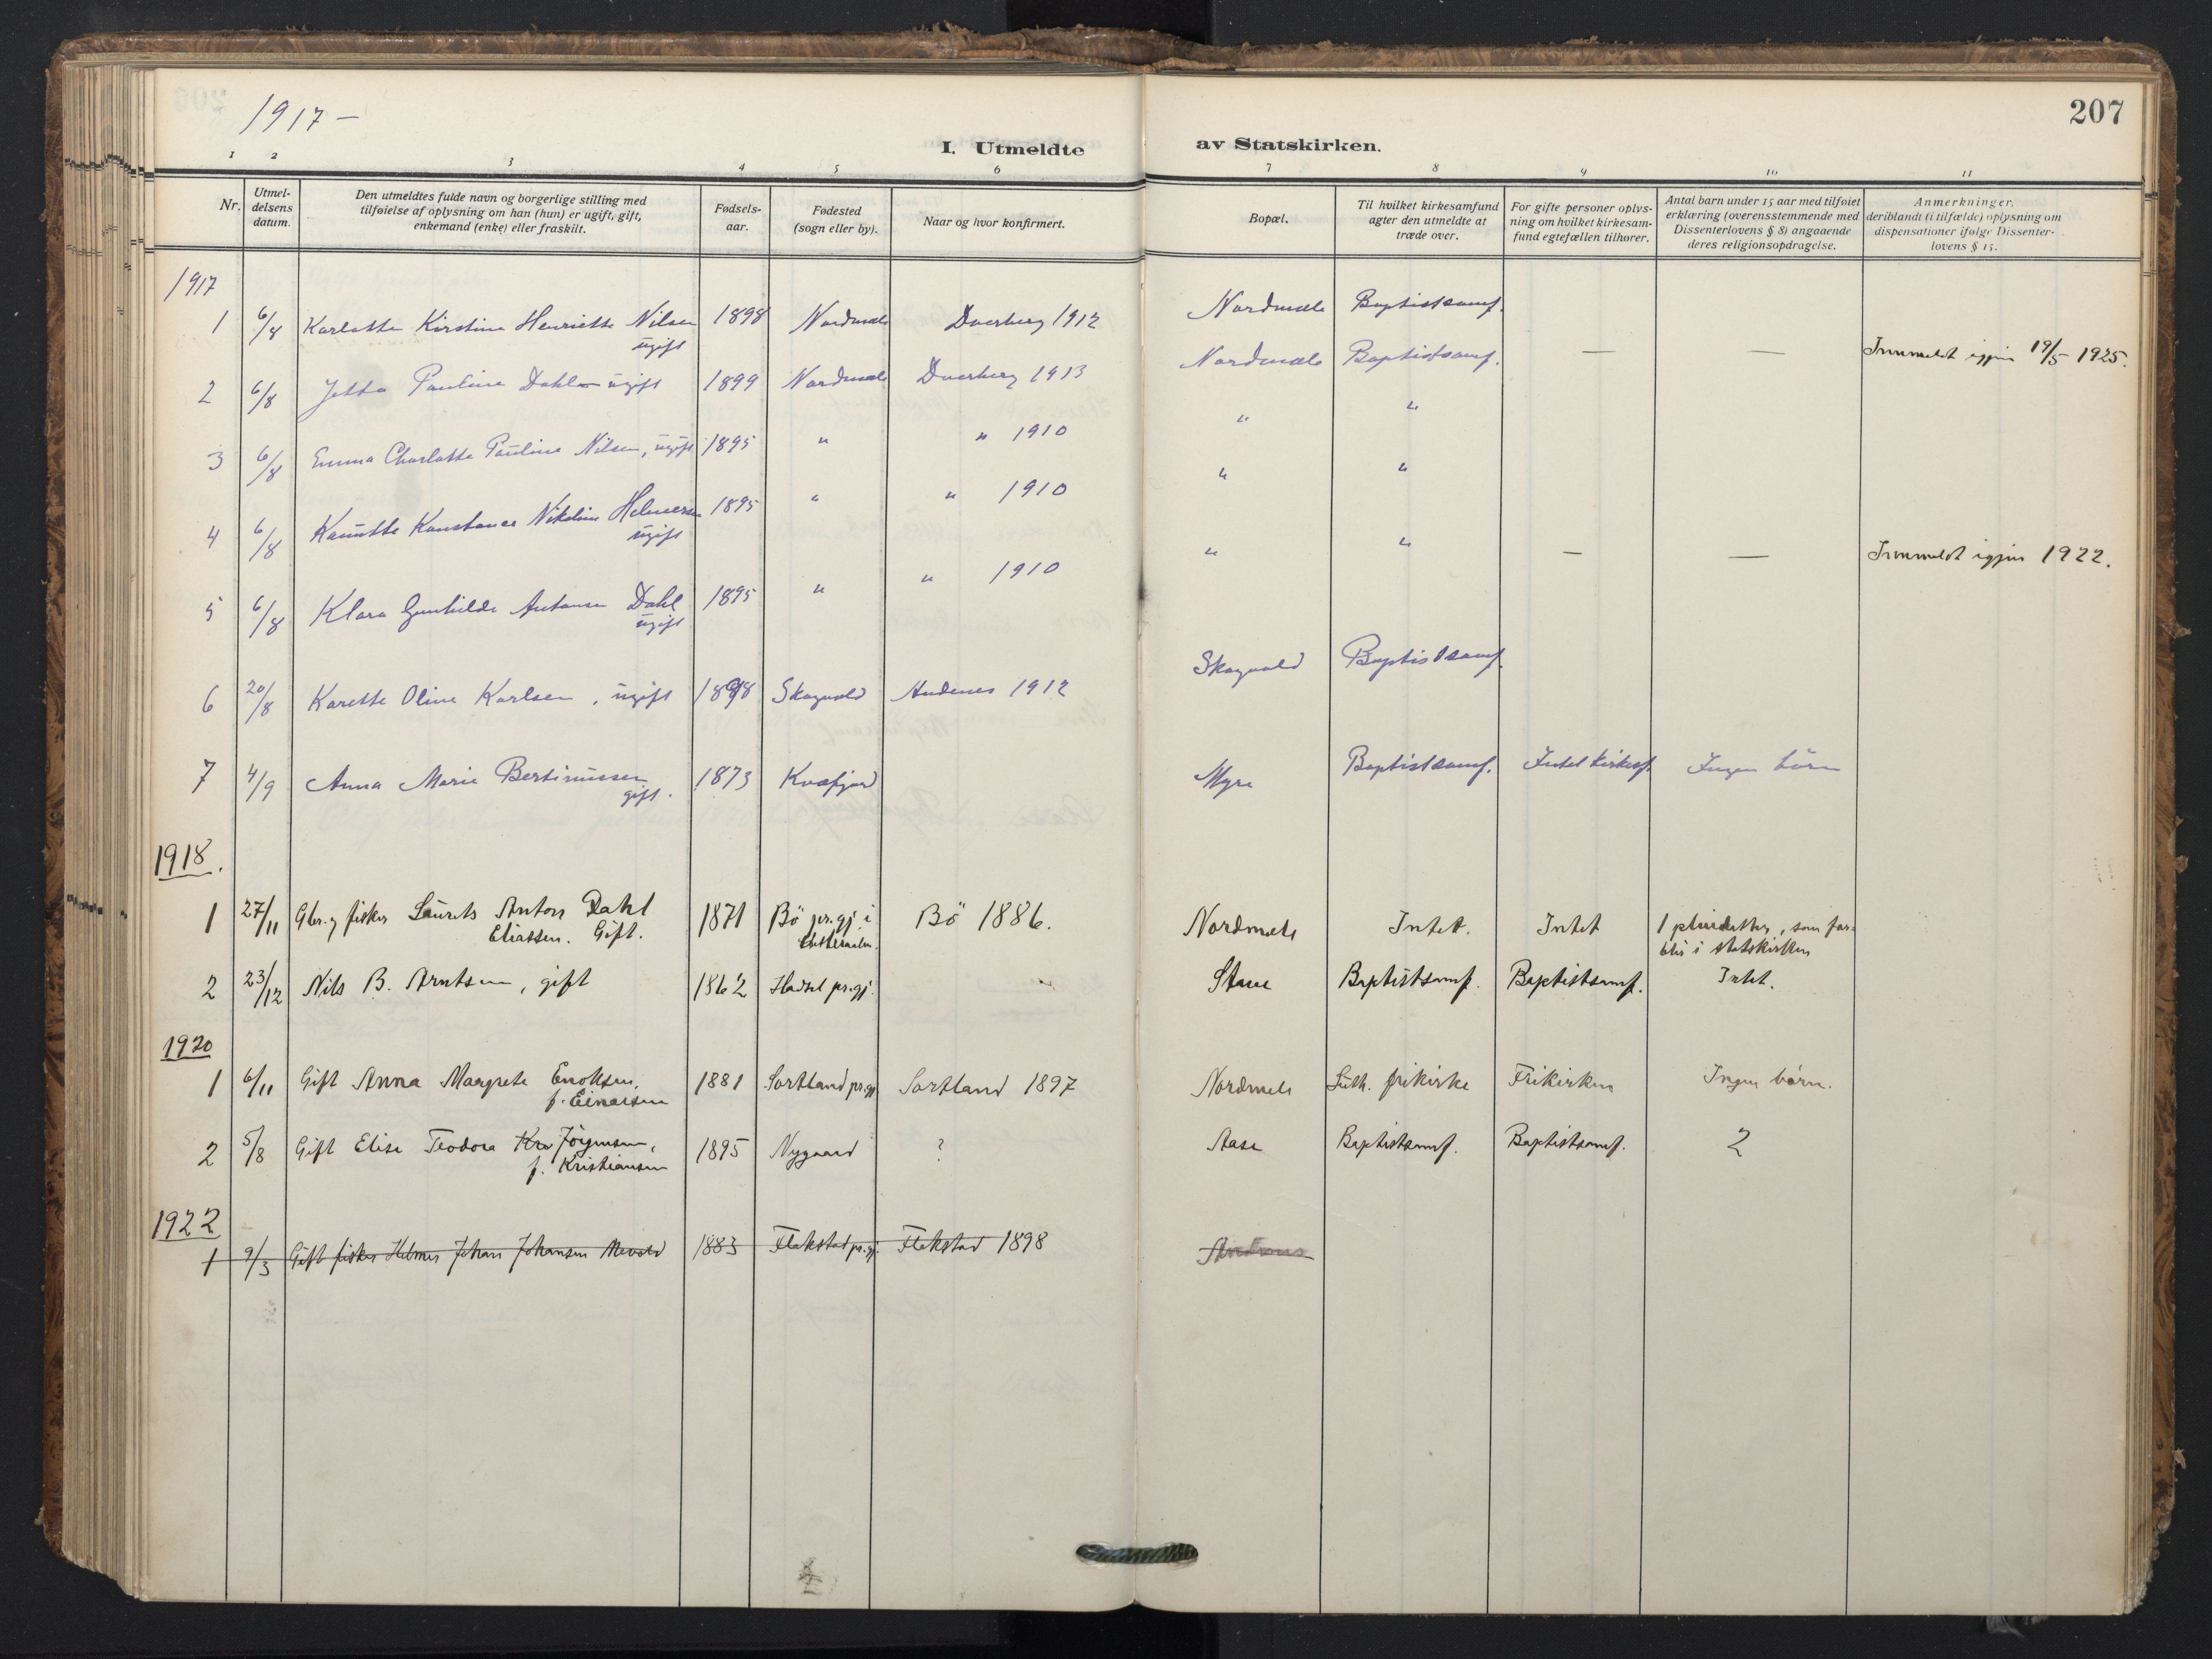 207
1917 –
I. Utmeldte av Statskirken.
1 2 3 4 5 6 7 8 9 10 11
Nr.
Utmel-
delsens
datum.
Den utmeldtes fulde navn og borgerlige stilling med
tilføielse af oplysning om han (hun) er ugift, gift,
enkemand (enke) eller fraskilt.
Fødsels-
aar.
Fødested
(sogn eller by).
Naar og hvor konfirmert.
Bopæl.
Til hvilket kirkesamfund
agter den utmeldte at
træde over.
For gifte personer oplys-
ning om hvilket kirkesam-
fund egtefællen tilhører.
Antal barn under 15 aar med tilføiet
erklæring (overensstemmende med
Dissenterlovens § 8) angaaende
deres religionsopdragelse.
Anmerkninger,
deriblandt (i tilfælde) oplysning om
dispensationer ifølge Dissenter-
lovens § 15.
1917
1 6/8 Karlotte Kirstine Henriette Nilsen 1898 Nordmele Dverberg 1912 Nordmele Baptistsamf.
ugift
2 6/8 Jetta Pauline Dahl ugift 1899 Nordmele Dverberg 1913 Nordmele Baptistsamf. — — Innmeldt igjen 19/5 1925.
3 6/8 Emma Charlotte Pauline Nilsen, ugift 1895 " " 1910 " "
4 6/8 Konstanse Nikoline Helmersen 1895 " " 1910 " "
ugift
5 6/8 Klara Gunhilde Antonsen Dahl 1895 " " 1910 " " — — Innmeldt igjen 1922.
ugift
6 20/8 Karette Oline Karlsen, ugift 1898 Skogvold Andenes 1912 Skogvold Baptistsamf.
7 4/9 Anna Marie Bertinussen 1873 Kvæfjord Myre Baptistsamf. Intet kirkesf. Ingen börn
gift.
1918.
1 27/11 Gbr. og fisker Laurits Anton Dahl 1871 Bö pr.gj. i Bö 1886. Nordmele Intet. Intet 1 pleiedatter, som for-
Eliassen. Gift. Vesteraalen. blir i statskirken
2 23/12 Nils B. Arntsen, gift 1862 Hadsel pr.gj. Stave Baptistsamf. Baptistsamf. Intet.
1920
1 6/11 Gift Anna Margrete Enoksen, 1881 Sortland pr.gj. Sortland 1897 Nordmele Luth. frikirke Frikirken Ingen börn.
f. Einarsen
2 5/8 Gift Elise Teodora Kra Jörgensen, 1895 Nygaard ? Aase Baptistsamf. Baptistsamf. 2
f. Kristiansen
1922
1 9/3 Gift fisker Helmer Johan Johansen 1883 Flakstad pr.gj. Flakstad 1898 Andenes